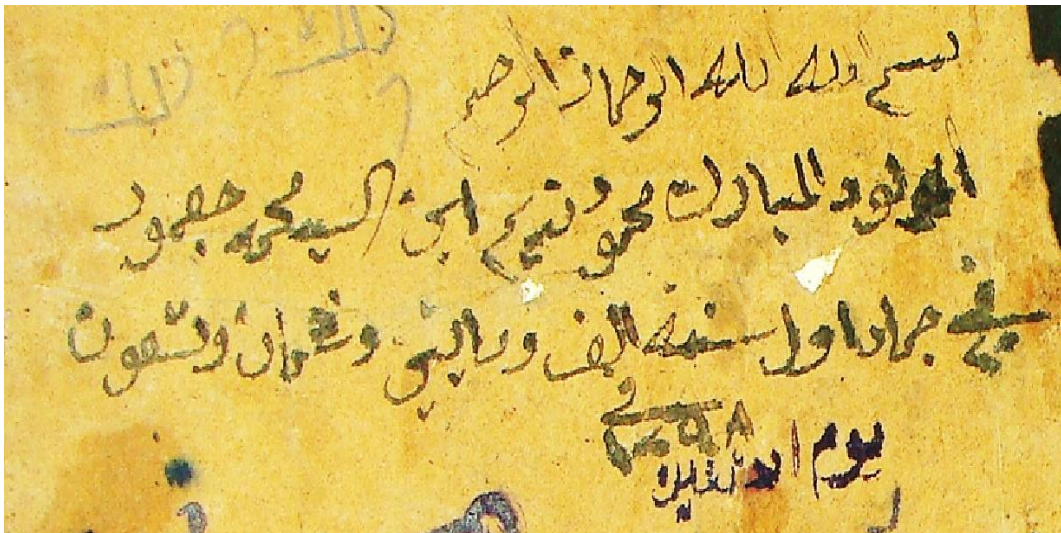 بسم الله الرحمان الرحيم
المولود المبارك محمود نديم ابن السيد محمد حمود
في جماد اول سنة الف ومايتين وثمان وتسعون
في ١٢٩٨
يوم الاثنين